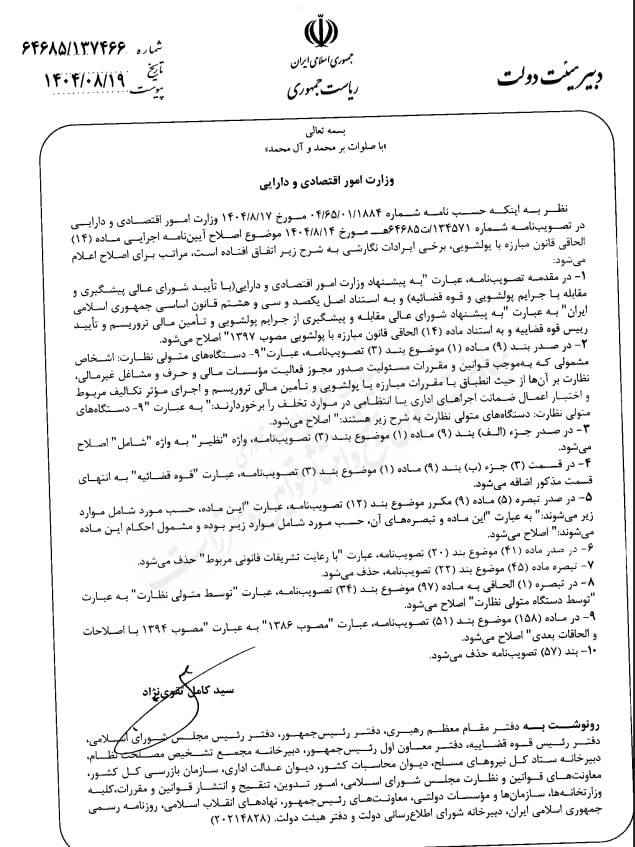 شماره ۶۴۶۸۵/۱۳۷۴۶۶
تاریخ ۱۴۰۴/۰۸/۱۹
پیوست
جمهوری اسلامی ایران
ریاست جمهوری
دبیر هیئت دولت
بسمه تعالی
«با صلوات بر محمد و آل محمد»
وزارت امور اقتصادی و دارایی
نظر به اینکه حسب نامه شماره ۰۴/۶۵/۰۱/۱۸۸۴ مورخ ۱۴۰۴/۸/۱۷ وزارت امور اقتصادی و دارایی
در تصویب‌نامه شماره ۱۳۴۵۷۱/ت۶۴۶۸۵هـ مورخ ۱۴۰۴/۸/۱۴ موضوع اصلاح آیین‌نامه اجرایی ماده (۱۴)
الحاقی قانون مبارزه با پولشویی، برخی ایرادات نگارشی به شرح زیر اتفاق افتاده است، مراتب برای اصلاح اعلام
می‌شود:
۱- در مقدمه تصویب‌نامه، عبارت "به پیشنهاد وزارت امور اقتصادی و دارایی(با تأیید شورای عالی پیشگیری و
مقابله با جرایم پولشویی و قوه قضائیه) و به استناد اصل یکصد و سی و هشتم قانون اساسی جمهوری اسلامی
ایران" به عبارت "به پیشنهاد شورای عالی مقابله و پیشگیری از جرایم پولشویی و تأمین مالی تروریسم و تأیید
رییس قوه قضاییه و به استناد ماده (۱۴) الحاقی قانون مبارزه با پولشویی مصوب ۱۳۹۷" اصلاح می‌شود.
۲- در صدر بند (۹) ماده (۱) موضوع بند (۳) تصویب‌نامه، عبارت"۹- دستگاه‌های متولی نظارت: اشخاص
مشمولی که به‌موجب قوانین و مقررات مسئولیت صدور مجوز فعالیت مؤسسات مالی و حرف و مشاغل غیرمالی،
نظارت بر آن‌ها از حیث انطباق با مقررات مبارزه با پولشویی و تأمین مالی تروریسم و اجرای مؤثر تکالیف مربوط
و اختیار اعمال ضمانت اجراهای اداری یا انتظامی در موارد تخلف را برخوردارند:" به عبارت "۹- دستگاه‌های
متولی نظارت: دستگاه‌های متولی نظارت به شرح زیر هستند:" اصلاح می‌شود.
۳- در صدر جزء (الف) بند (۹) ماده (۱) موضوع بند (۳) تصویب‌نامه، واژه "نظیر" به واژه "شامل" اصلاح
می‌شود.
۴- در قسمت (۳) جزء (ب) بند (۹) ماده (۱) موضوع بند (۳) تصویب‌نامه، عبارت "قوه قضائیه" به انتهای
قسمت مذکور اضافه می‌شود.
۵- در صدر تبصره (۵) ماده (۹) مکرر موضوع بند (۱۲) تصویب‌نامه، عبارت "این ماده، حسب مورد شامل موارد
زیر می‌شوند:" به عبارت "این ماده و تبصره‌های آن، حسب مورد شامل موارد زیر بوده و مشمول احکام این ماده
می‌شوند:" اصلاح می‌شود.
۶- در صدر ماده (۴۱) موضوع بند (۲۰) تصویب‌نامه، عبارت "با رعایت تشریفات قانونی مربوط" حذف می‌شود.
۷- تبصره ماده (۴۵) موضوع بند (۲۲) تصویب‌نامه، حذف می‌شود.
۸- در تبصره (۱) الحاقی به ماده (۹۷) موضوع بند (۳۴) تصویب‌نامه، عبارت "توسط متولی نظارت" به عبارت
"توسط دستگاه متولی نظارت" اصلاح می‌شود.
۹- در ماده (۱۵۸) موضوع بند (۵۱) تصویب‌نامه، عبارت "مصوب ۱۳۸۶" به عبارت "مصوب ۱۳۹۴ با اصلاحات
و الحاقات بعدی" اصلاح می‌شود.
۱۰- بند (۵۷) تصویب‌نامه حذف می‌شود.
سید کامل تقوی‌نژاد
رونوشت به دفتر مقام معظم رهبری، دفتر رئیس‌جمهور، دفتر رئیس مجلس شورای اسلامی،
دفتر رئیس قوه قضاییه، دفتر معاون اول رئیس‌جمهور، دبیرخانه مجمع تشخیص مصلحت نظام،
دبیرخانه ستاد کل نیروهای مسلح، دیوان محاسبات کشور، دیوان عدالت اداری، سازمان بازرسی کل کشور،
معاونت‌های قوانین و نظارت مجلس شورای اسلامی، امور تدوین، تنقیح و انتشار قوانین و مقررات،کلیه
وزارتخانه‌ها، سازمان‌ها و مؤسسات دولتی، معاونت‌های رئیس‌جمهور، نهادهای انقلاب اسلامی، روزنامه رسمی
جمهوری اسلامی ایران، دبیرخانه شورای اطلاع‌رسانی دولت و دفتر هیئت دولت. (۲۰۲۱۴۸۲۸)